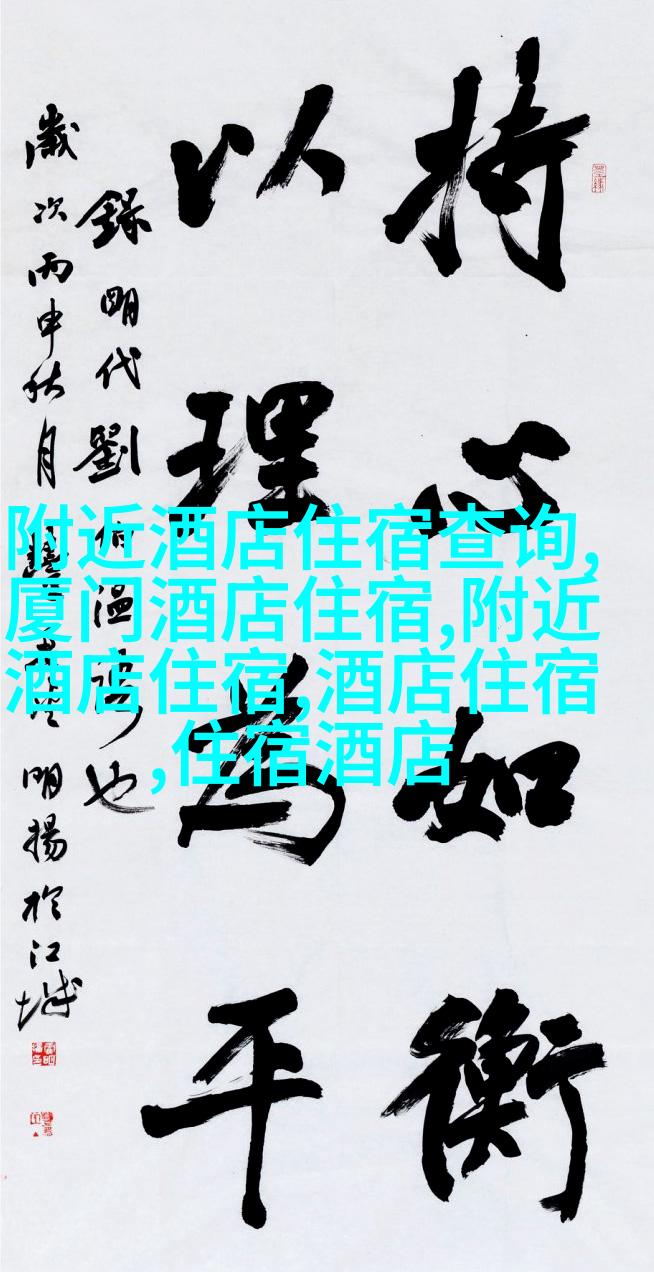 持心如衡
以理為平
錄明代劉伯溫語也
歲次丙申秋月 明揚於江城
附近酒店住宿查询,
厦门酒店住宿,附近
酒店住宿,酒店住宿
,住宿酒店